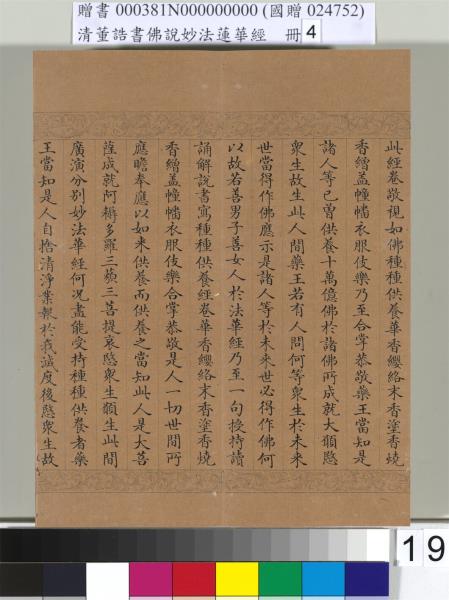 贈書 000381N000000000 (國贈 024752)
清董誥書佛說妙法蓮華經 冊 4
此經卷敬視如佛種種供養華香瓔珞末香塗香燒
香繒盖幢幡衣服伎樂乃至合掌恭敬藥王當知是
諸人等已曾供養十萬億佛於諸佛所成就大願愍
衆生故生此人間藥王若有人問何等衆生於未來
世當得作佛應示是諸人等於未來世必得作佛何
以故若善男子善女人於法華經乃至一句授持讀
誦解說書寫種種供養經卷華香纓絡末香塗香燒
香繒盖幢幡衣服伎樂合掌恭敬是人一切世間所
應瞻奉應以如來供養而供養之當知此人是大菩
薩成就阿耨多羅三藐三菩提哀愍衆生願生此間
廣演分別妙法華經何况盡能受持種種供養者藥
王當知是人自捨清淨業報於我滅度後愍衆生故
19